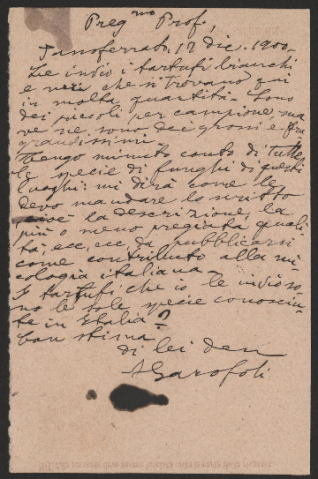 Preg.mo Prof.,
Sanoferrato, 17 dic. 1900.
Le invio i tartufi bianchi
e neri che si trovano qui
in molta quantità. Sono
dei piccoli per campione, ma
ve ne sono dei grossi e
grandissimi.
Tengo minuto conto di tutte
le specie di funghi di questi
luoghi: mi dirà come le
devo mandare lo scritto
cioè la descrizione, la
più o meno pregiata quali
tà, ecc, ecc, da pubblicarsi
come contributo alla mi
cologia italiana.
I tartufi che io le invio so,
no le sole specie conosciu
te in Italia?
Con stima
di lei dev
A Garofoli